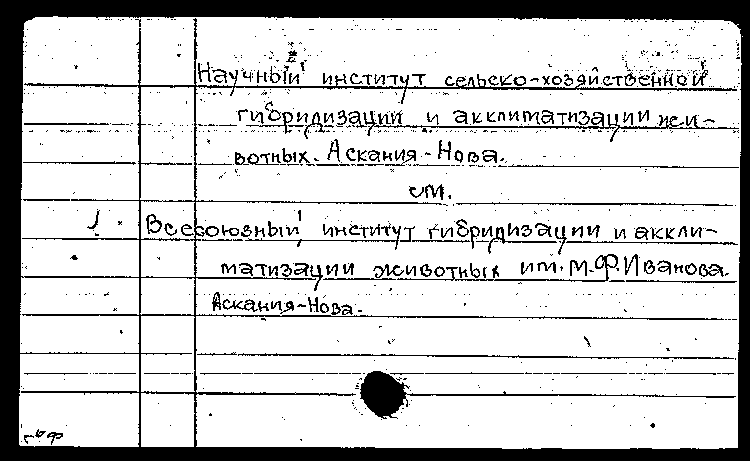 Научный институт сельско-хозяйственной
гибридизации и акклиматизации жи-
вотных. Аскания-Нова.
см.
1. Всесоюзный институт гибридизации и аккли-
матизации животных им. М.Ф.Иванова.
Аскания-Нова.